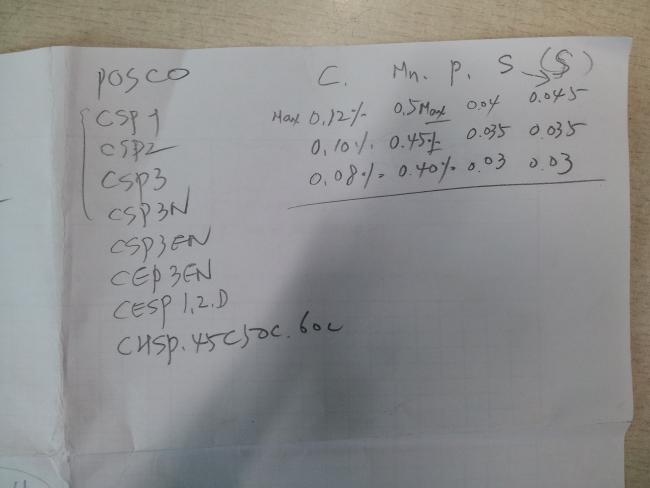 POSCO C. Mn. P. S (S)
CSP1 Max 0.12% 0.5Max 0.04 0.045
CSP2 0.10% 0.45% 0.035 0.035
CSP3 0.08% 0.40% 0.03 0.03
CSP3N
CSP3EN
CEP3EN
CESP 1.2.D
CHSP.45C50C.60C